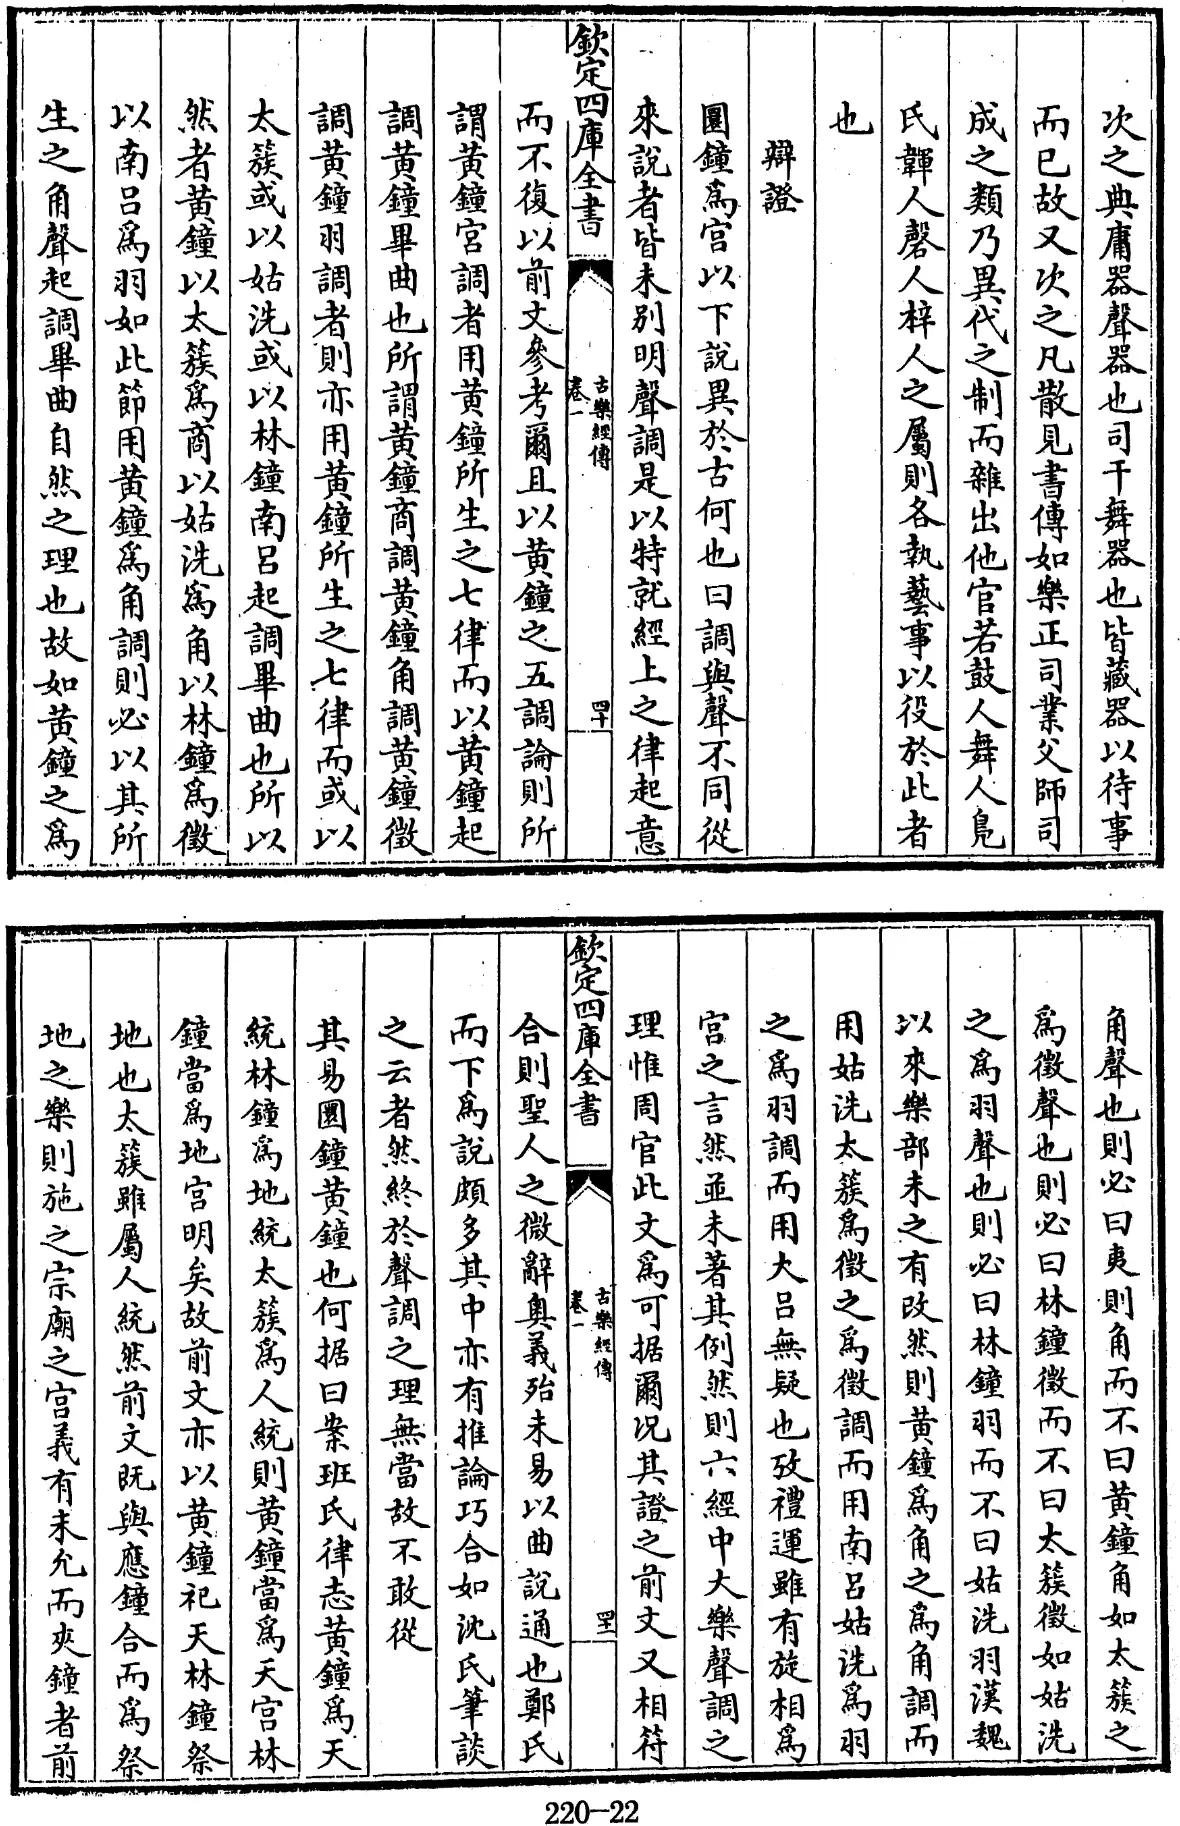 次之典庸器聲器也司干舞器也皆藏器以待事
而已故又次之凡散見書傳如樂正司業父師司
成之類乃異代之制而雜出他官若鼓人舞人鳧
氏韗人磬人梓人之屬則各執藝事以役於此者
也
辯證
圜鐘爲宮以下說異於古何也曰調與聲不同從
來說者皆未別明聲調是以特就經上之律起意
欽定四庫全書
古樂經傳
卷一
四十
而不復以前文參考爾且以黄鐘之五調論則所
謂黄鐘宮調者用黄鐘所生之七律而以黄鐘起
調黄鐘畢曲也所謂黄鐘商調黄鐘角調黄鐘徵
調黄鐘羽調者則亦用黄鐘所生之七律而或以
太簇或以姑洗或以林鐘南呂起調畢曲也所以
然者黄鐘以太簇爲商以姑洗爲角以林鐘爲徵
以南呂爲羽如此節用黄鐘爲角調則必以其所
生之角聲起調畢曲自然之理也故如黄鐘之爲
角聲也則必曰夷則角而不曰黄鐘角如太簇之
爲徵聲也則必曰林鐘徵而不曰太簇徵如姑洗
之爲羽聲也則必曰林鐘羽而不曰姑洗羽漢魏
以來樂部未之有改然則黄鐘爲角之爲角調而
用姑洗太簇爲徵之爲徵調而用南呂姑洗爲羽
之爲羽調而用大呂無疑也攷禮運雖有旋相爲
宮之言然並未著其例然則六經中大樂聲調之
理惟周官此文爲可据爾况其證之前文又相符
欽定四庫全書
古樂經傳
卷一
四十一
合則聖人之微辭奥義殆未易以曲說通也鄭氏
而下爲說頗多其中亦有推論巧合如沈氏筆談
之云者然終於聲調之理無當故不敢從
其易圜鐘黄鐘也何据曰案班氏律志黄鐘爲天
統林鐘爲地統太簇爲人統則黄鐘當爲天宮林
鐘當爲地宮明矣故前文亦以黄鐘祀天林鐘祭
地也太簇雖屬人統然前文既與應鐘合而爲祭
地之樂則施之宗廟之宮義有未允而夾鐘者前
220-22